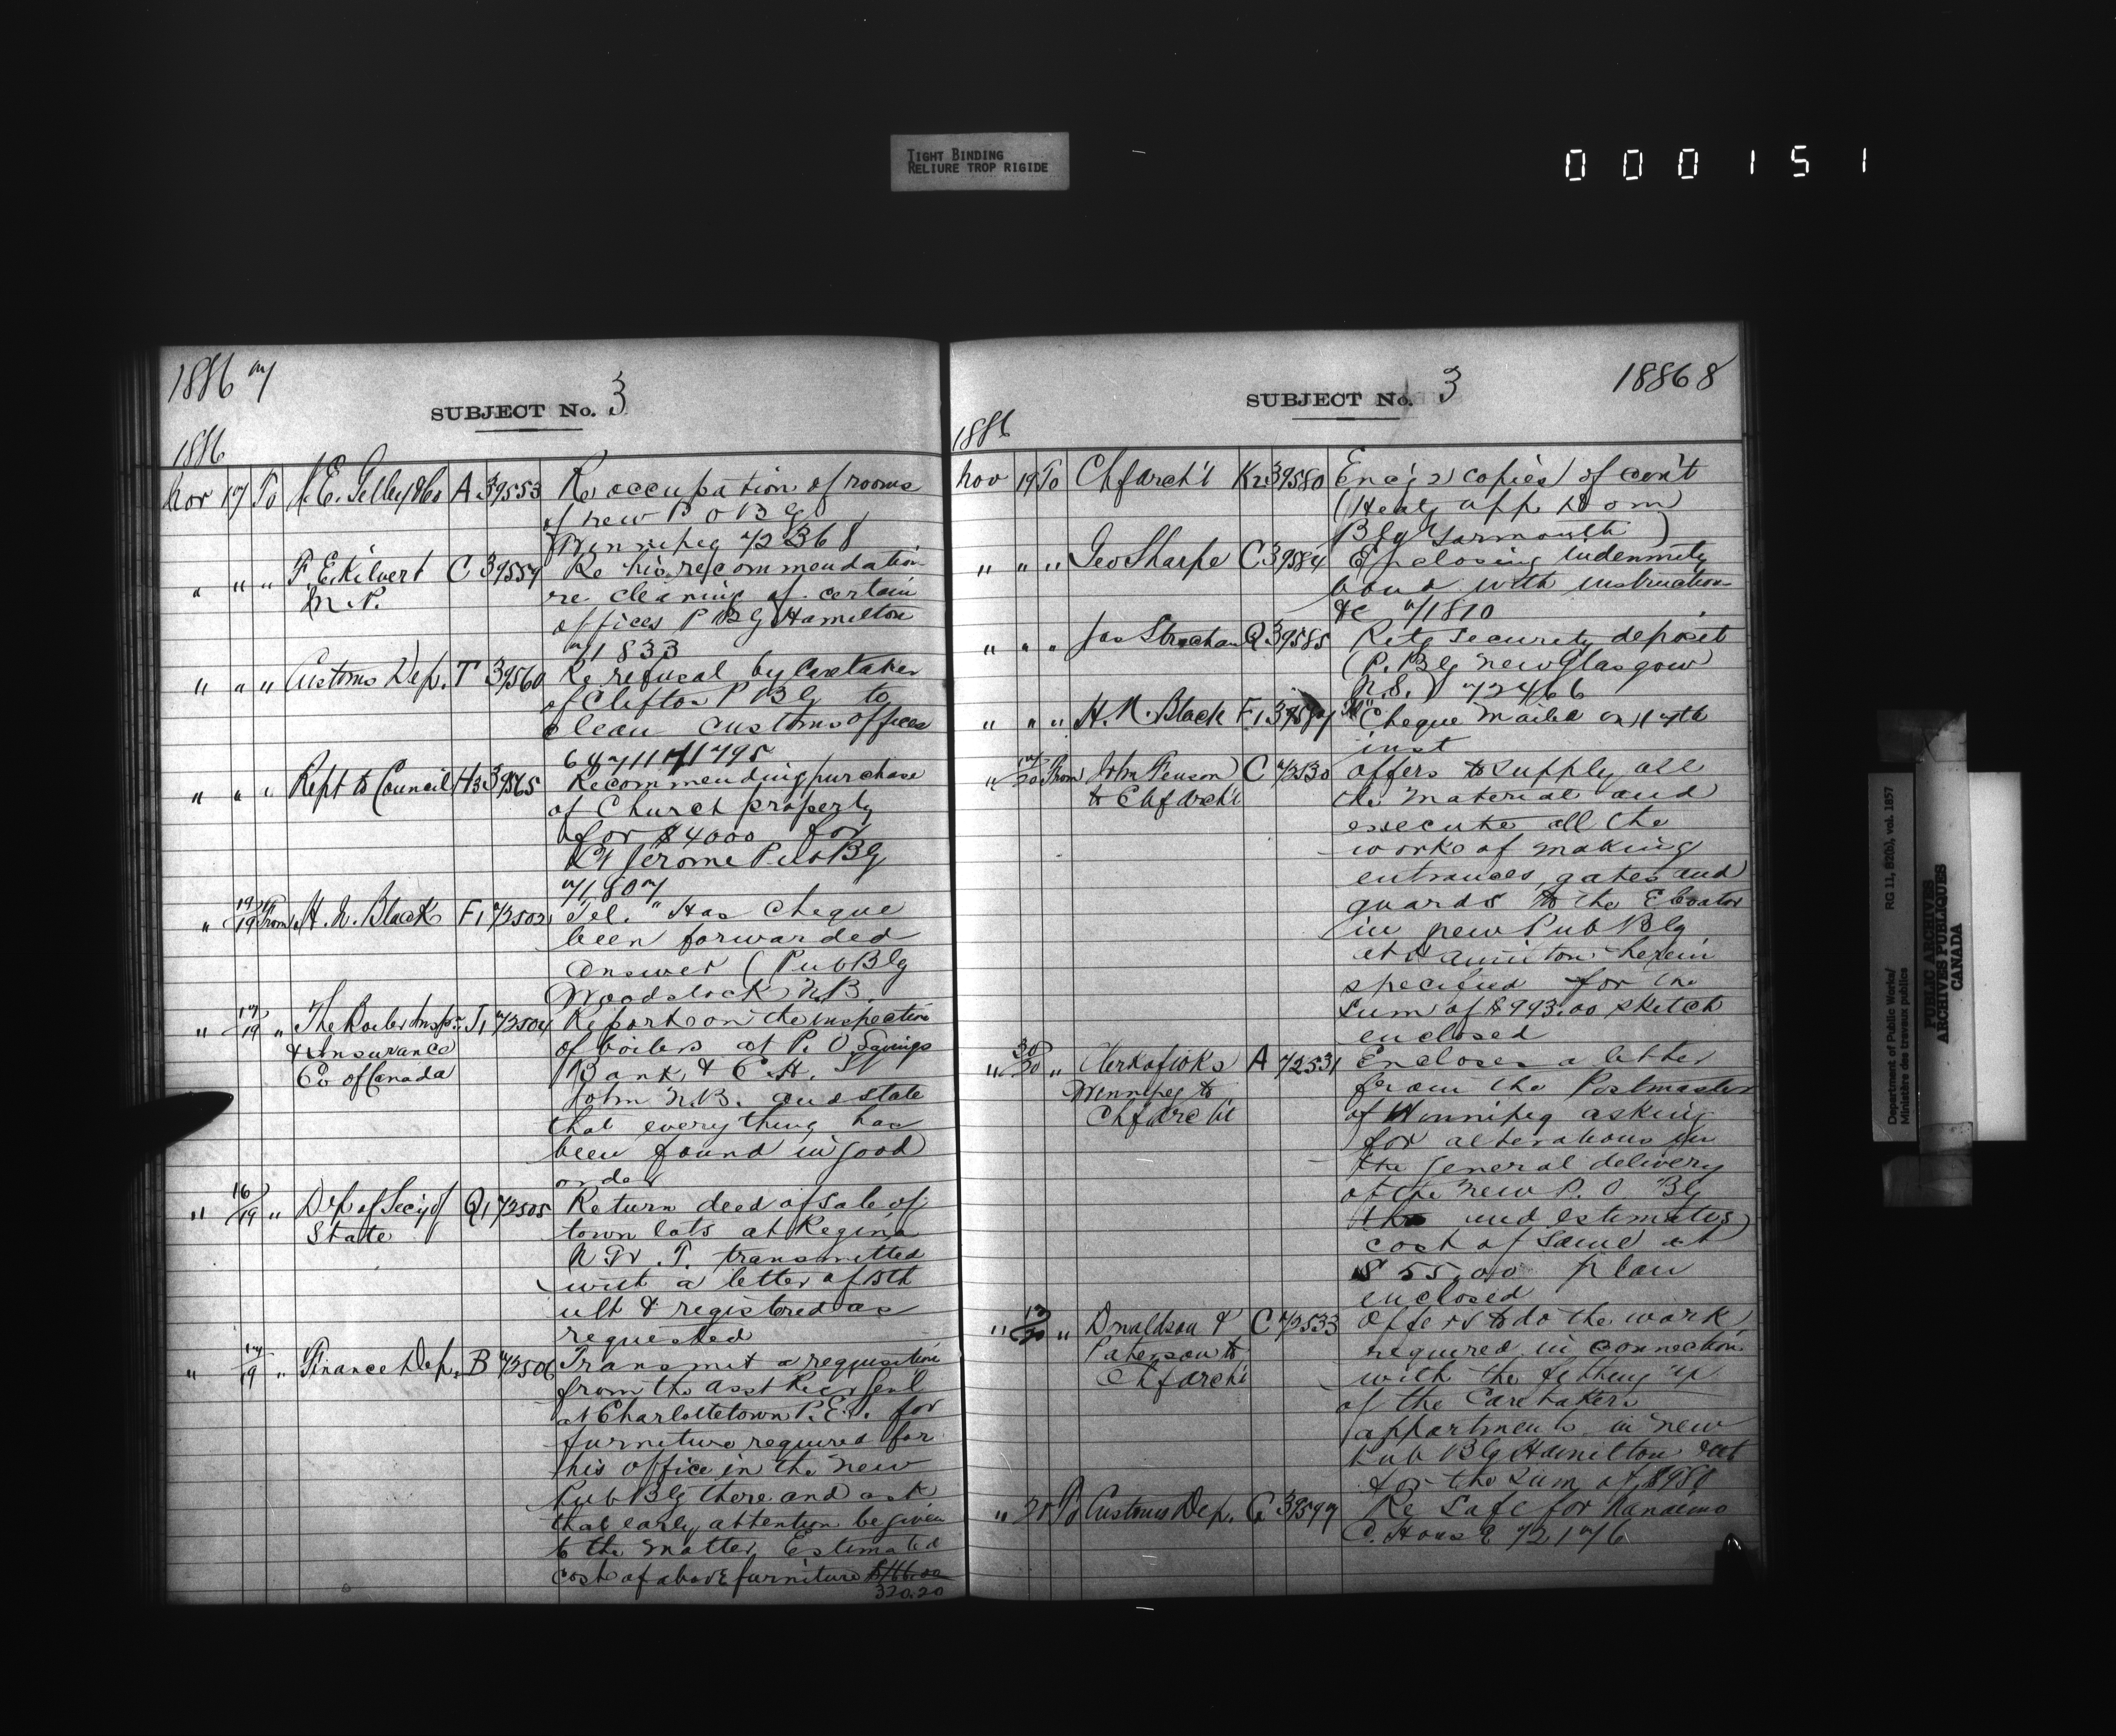 TIGHT BINDING
RELIURE TROP RIGIDE
0 0 0 1 5 1
1886 7
SUBJECT No. 3
1886
Nov 17 To A 39553 Re occupation of rooms
of new P O Blg
Winnipeg 72368
" " " F. E. Kilvert C 39559 Re his recommendation
M.P. re cleaning of certain
offices P Blg Hamilton
71833
" " " Customs Dep. T 39560 Re refusal by Caretaker
of Clifton P Blg to
clean customs offices
71795
" " " Rept to Council H3 39565 Recommending purchase
of Church property
for $4000 for
St Jerome Pub Blg
71807
" 19/19 From H. N. Black F1 72502 Tel. "Has Cheque
been forwarded
Answer (Pub Blg
Woodstock N.B.
" 17/19 " The Boiler Inspn J1 72504 Reports on the inspection
& Insurance of boilers at P. O. Savings
Co of Canada Bank, & C. H. St
John N.B. and state
that everything has
been found in good
order
" 16/19 " Dep of Secy of Q1 72505 Return deed of sale of
State town lots at Regina
N. W. T. transmitted
with a letter of 15th
ult & registered as
requested
" 17/19 " Finance Dep. B 72506 Transmit a requisition
from the Asst Recr Genl
at Charlottetown P.E.I. for
furniture required for
his office in the new
Pub Blg there and ask
that early attention be given
to the matter. Estimated
cost of above furniture $166.00
320.20
SUBJECT No. 3
1886 8
1886
Nov 19 To Chf Archt K2 39580 Enc'g 2 copies of con't
(Heatg app Dom
Blg Yarmouth)
" " " Geo Sharpe C 39584 Enclosing indemnity
bond with instructions
&c 71810
" " " Jas Strachan Q 39585 Retg security deposit
(P. Blg New Glasgow
N.S.) 72466
" " " H. N. Black F1 39587 "Cheque mailed on 17th
inst
" 17/20 From John Fenson C 72530 Offers to supply all
to Chf Archt the material and
execute all the
works of making
entrances, gates and
guards to the Elevator
in new Pub Blg
at Hamilton herein
specified for the
sum of $993.00 sketch
enclosed
" 30/20 " Clerk of Wks A 72531 Encloses a letter
Winnipeg to from the Postmaster
Chf Archt of Winnipeg asking
for alterations in
the general delivery
of the new P. O Blg
the and estimates
cost of same at
$55.00 plan
enclosed
" 13/20 " Donaldson & C 72533 Offers to do the work
Paterson to required in connection
Chf Archt with the fitting up
of the Caretakers
appartments in new
Pub Blg Hamilton Ont
for the sum of $980
" 20 To Customs Dep. G 39597 Re Safe for Nanaimo
C. House 72176
Department of Public Works/ RG 11, B2(b), vol. 1857
Ministère des travaux publics
PUBLIC ARCHIVES
ARCHIVES PUBLIQUES
CANADA